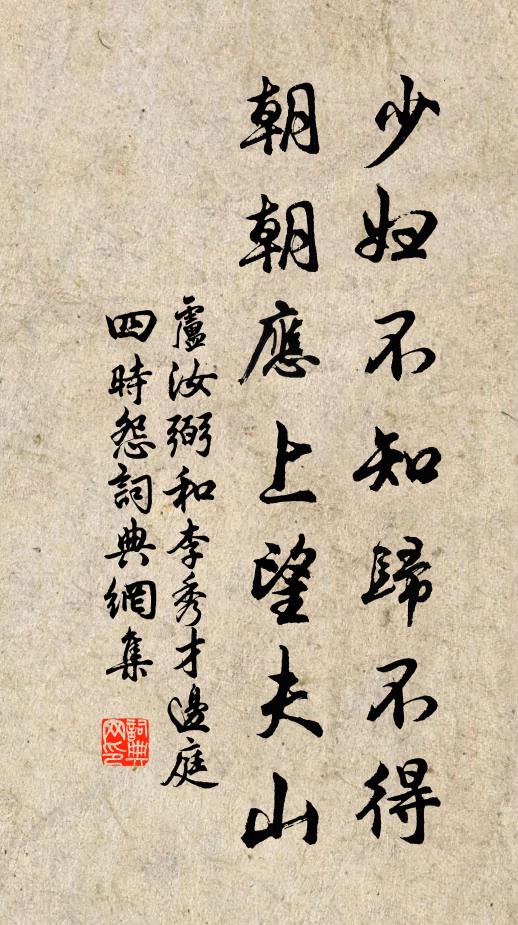 少妇不知歸不得
朝朝應上望夫山
盧汝弼和李秀才邊庭
四時怨詞典網集
詞典
网印